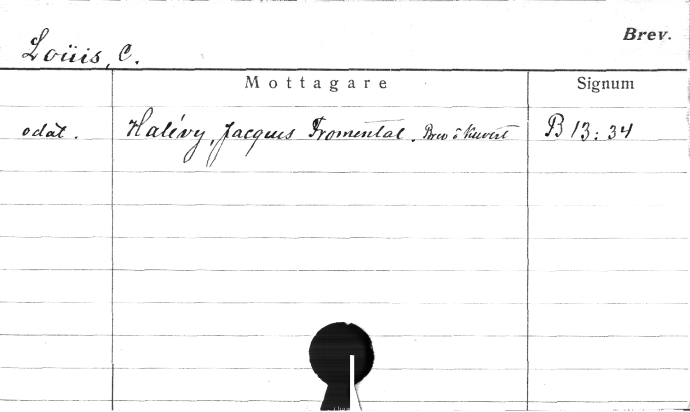 Brev.
Loüis, C.
Mottagare Signum
odat. Halévy, Jacques Fromental. Brev o Kuvert B 13:34